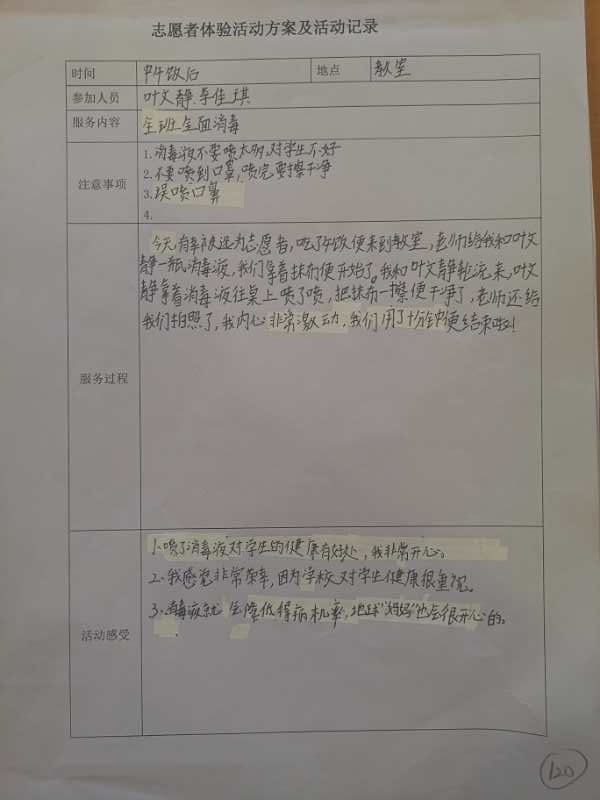 志愿者体验活动方案及活动记录
时间 中午饭后 地点 教室
参加人员 叶文静.李佳琪
服务内容 全班全面消毒
注意事项
1.消毒液不要喷太明,对学生不好
2.不要喷到口罩,喷完要擦干净
3.误喷口鼻
4.
服务过程
今天有幸被选为志愿者,吃了午饭便来到教室,老师给我和叶文
静一瓶消毒液,我们拿着抹布便开始了。我和叶文静轮流来,叶文
静拿着消毒液往桌上喷了喷,把抹布一擦便干净了,老师还给
我们拍照了,我内心非常激动,我们用了十分钟便结束啦!
活动感受
1.喷了消毒液对学生的健康有好处,我非常开心。
2.我感觉非常荣幸,因为学校对学生健康很重视。
3.消毒液就 会降低得病机率,地球"妈妈"也会很开心的。
120